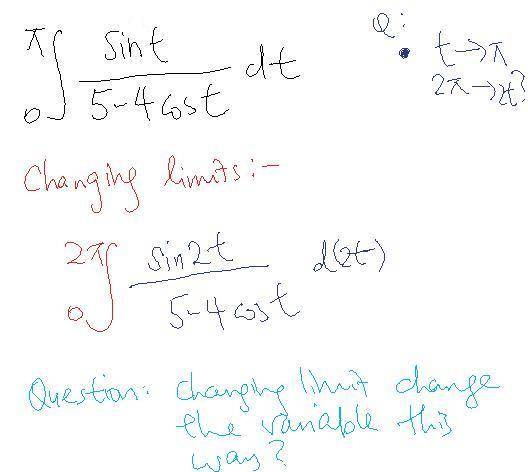 π∫0 sint / 5-4cost dt
Q:
• t→π
2π→2t?
Changing limits:-
2π∫0 sin2t / 5-4cost d(2t)
Question: Changing limit change
the variable this
way?